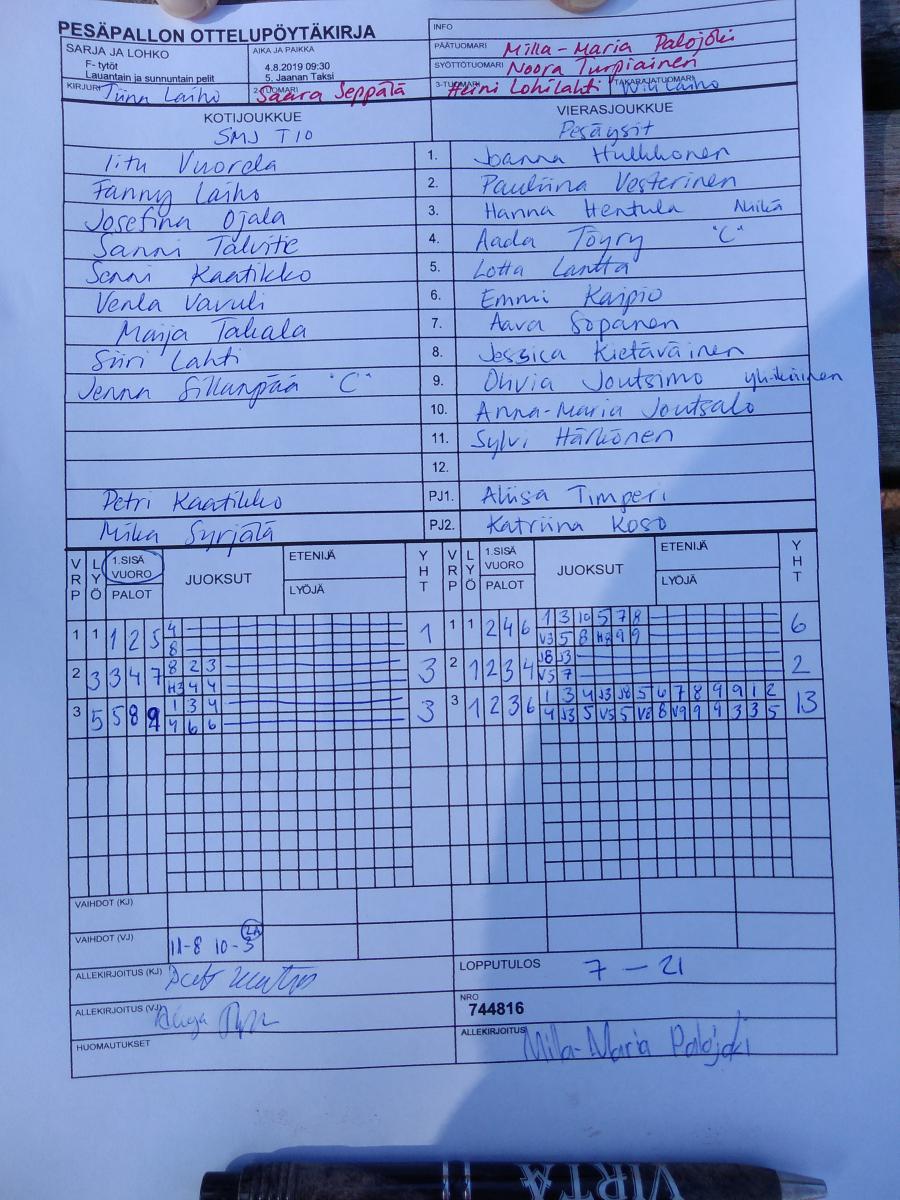 PESÄPALLON OTTELUPÖYTÄKIRJA
INFO
SARJA JA LOHKO
F- tytöt
Lauantain ja sunnuntain pelit
AIKA JA PAIKKA
4.8.2019 09:30
5. Jaanan Taksi
PÄÄTUOMARI Milla-Maria Palojoki
SYÖTTÖTUOMARI Noora Turpiainen
KIRJURI Tiina Laiho
2-TUOMARI Saara Seppälä
3-TUOMARI Heini Lohilahti
TAKARAJATUOMARI Laiho
KOTIJOUKKUE
SMJ T10
VIERASJOUKKUE
Pesäysit
Iitu Vuorela 1. Joanna Hulkkonen
Fanny Laiho 2. Pauliina Vesterinen
Josefina Ojala 3. Hanna Hentula
Sanni Talvitie 4. Aada Töyry "C"
Senni Kaatikko 5. Lotta Lantta
Venla Vavuli 6. Emmi Kaipio
Maija Takala 7. Aava Sopanen
Siiri Lahti 8. Jessica Kietäväinen
Jenna Sillanpää "C" 9. Olivia Joutsimo
10. Anna-Maria Joutsalo
11. Sylvi Härkönen
12.
Petri Kaatikko PJ1. Aliisa Timperi
Mika Syrjälä PJ2. Katriina Koso
VRP LYÖ 1.SISÄ VUORO PALOT JUOKSUT ETENIJÄ LYÖJÄ YHT VRP LYÖ 1.SISÄ VUORO PALOT JUOKSUT ETENIJÄ LYÖJÄ YHT
1 1 1 2 5 4 1 1 1 2 4 6 1 3 10 5 7 8 6
8 V3 5 8 H8 9 9
2 3 3 4 7 8 2 3 3 2 1 2 3 4 J8 J3 2
H3 4 4 V5 7
3 5 5 8 9 1 3 4 3 3 1 2 3 6 1 3 4 J3 J8 5 6 7 8 9 9 1 2 13
4 6 6 4 J3 5 V5 5 V8 8 V9 9 9 3 3 5
VAIHDOT (KJ)
VAIHDOT (VJ) 11-8 10-3 2A
ALLEKIRJOITUS (KJ)
LOPPUTULOS 7 - 21
ALLEKIRJOITUS (VJ)
NRO
744816
HUOMAUTUKSET
ALLEKIRJOITUS Milla-Maria Palojoki
VIRTA